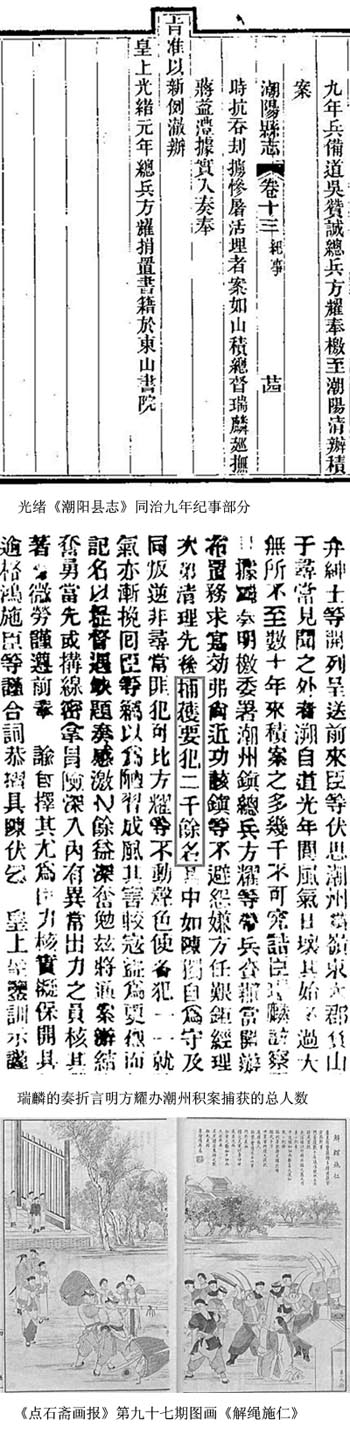 九年兵備道吳贊誠總兵方耀奉檄至潮陽清辦積
案
潮陽縣志 卷十三 紀事
時抗吞刦擄慘屠活埋者案如山積總督瑞麟廵撫
蔣益澧據實入奏奉
旨准以新例澈辦
皇上光緒元年總兵方耀捐置書籍於東山書院
光绪《潮阳县志》同治九年纪事部分
弁紳士等開列呈送前來臣等伏思潮州嶺東大郡負山
于尋常見聞之外者溯自道光年間風氣日壞其始不過大
無所不至數十年來積案之多幾千不可究詰臣瑞麟訪察
據奏明檄委署潮州鎮總兵方耀等帶兵查辦當開辦
布置務求實効弗尚近功該鎮等不避怨嫌力任艱鉅經理
次第清理先後捕獲要犯二千餘名其中如陳獨目為守及
同叛逆非尋常明犯可比方耀等不動聲色使各犯一一就
氣亦漸挽回臣等竊以為陋習成風其害較寇盗為更烈而
記名以提督遇缺題奏感激之餘益深奮勉茲將通案辦結
奮勇當先或搆線密拿冒險深入內有異常出力之員核其
著有微勞謹遵前奉 諭旨擇其尤為出力核實擬保開具
逾格鴻施臣等謹合詞恭摺具陳伏乞 皇上聖鑒訓示謹
瑞麟的奏折言明方耀办潮州积案捕获的总人数
解繩施仁
《点石斋画报》第九十七期图画《解绳施仁》